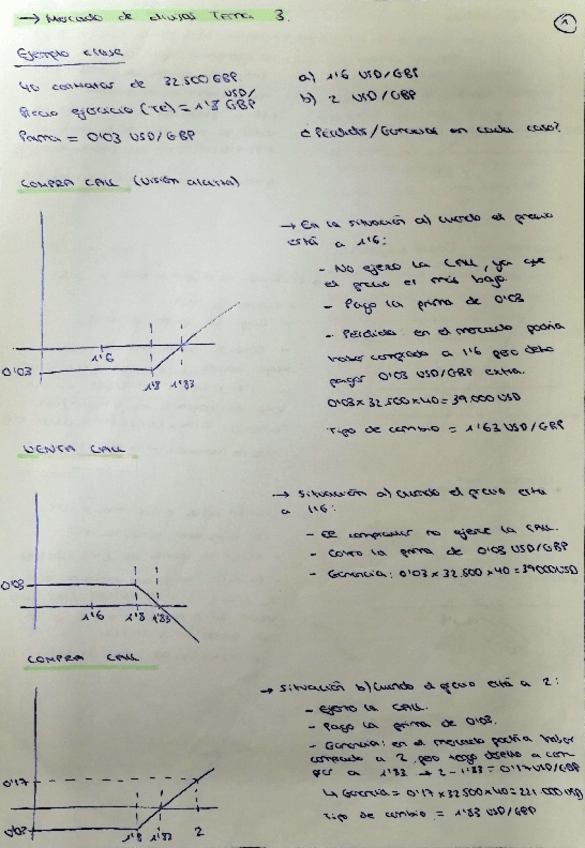 → Mercado de divisas Tema 3.
1
Ejemplo clase
40 contratos de 32.500 GBP
Precio ejercicio (TC) = 1'8 USD/GBP
Prima = 0'03 USD/GBP
a) 1'6 USD/GBP
b) 2 USD/GBP
¿Pérdidas/Ganancias en cada caso?
COMPRA CALL (Visión alcista)
0'03
1'6
1'8
1'83
→ En la situación a) cuando el precio
está a 1'6:
- No ejerzo la CALL, ya que
el precio es más bajo.
- Pago la prima de 0'03
- Pérdida: en el mercado podría
haber comprado a 1'6 pero debo
pagar 0'03 USD/GBP extra.
0'03 x 32.500 x 40 = 39.000 USD
Tipo de cambio = 1'63 USD/GBP
VENTA CALL
0'03
1'6
1'8
1'83
→ Situación a) cuando el precio está
a 1'6:
- El comprador no ejerce la CALL.
- Cobro la prima de 0'03 USD/GBP
- Ganancia: 0'03 x 32.500 x 40 = 39000 USD
COMPRA CALL
0'17
0'03
1'8
1'83
2
→ Situación b) cuando el precio está a 2:
- Ejerzo la CALL.
- Pago la prima de 0'03.
- Ganancia: en el mercado podría haber
comprado a 2, pero tengo derecho a com
prar a 1'83 → 2 - 1'83 = 0'17 USD/GBP
↳ Ganancia = 0'17 x 32500 x 40 = 221.000 USD
Tipo de cambio = 1'83 USD/GBP